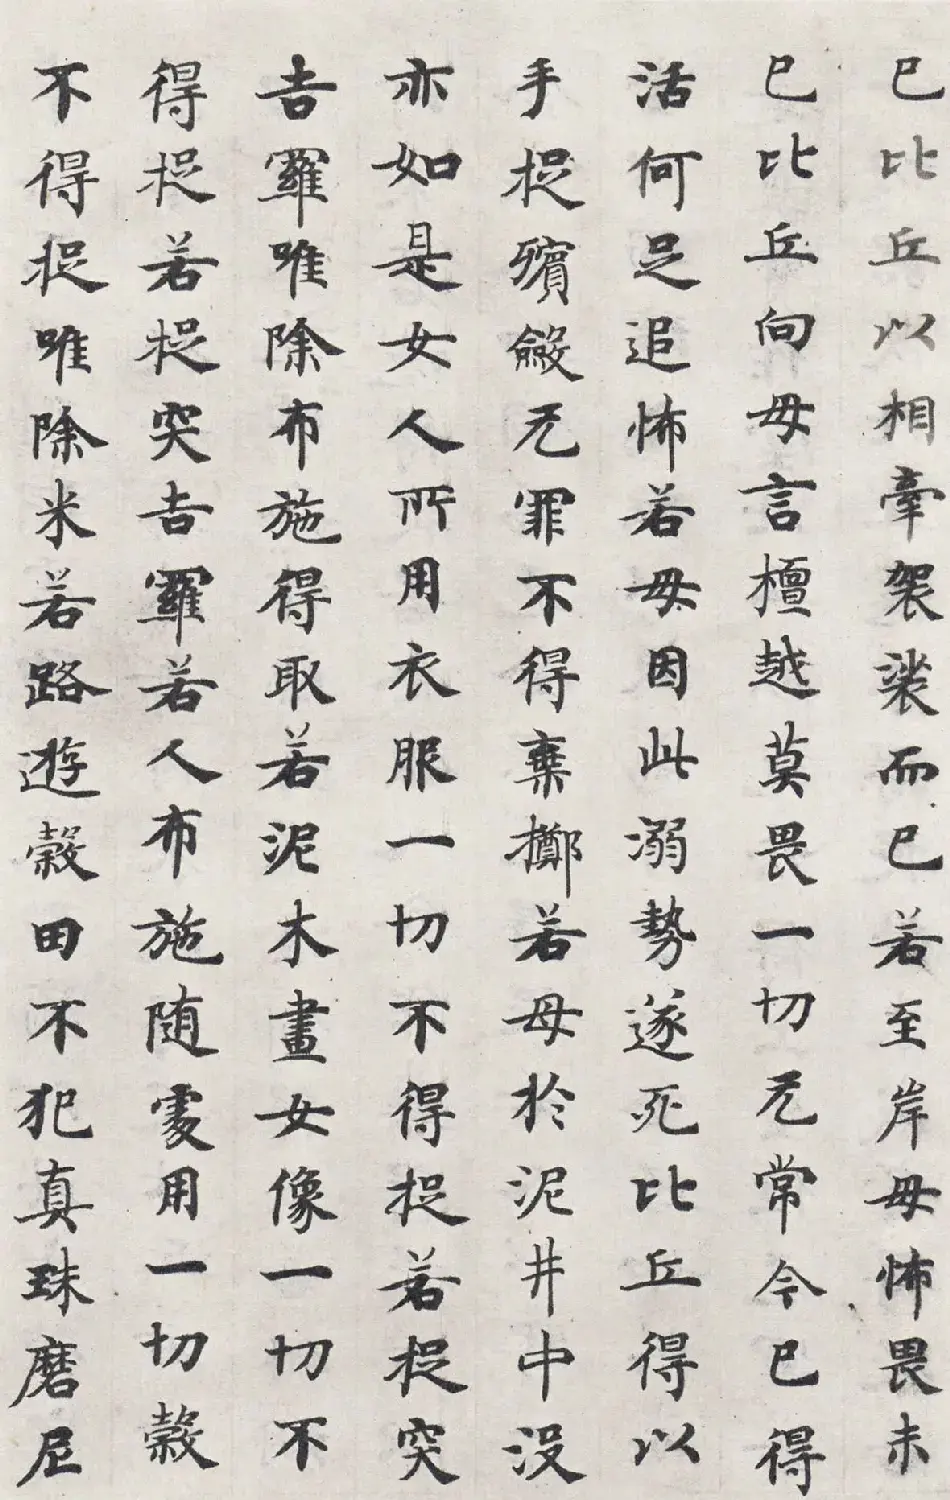 已比丘以相牽袈裟而已若至岸母怖畏未
已比丘向母言檀越莫畏一切无常令已得
活何足追怖若母因此溺勢遂死比丘得以
手捉殯斂无罪不得棄擲若母於泥井中没
亦如是女人所用衣服一切不得捉若捉突
吉羅唯除布施得取若泥木畫女像一切不
得捉若捉突吉羅若人布施随處用一切穀
不得捉唯除米若路遊穀田不犯真珠磨尼